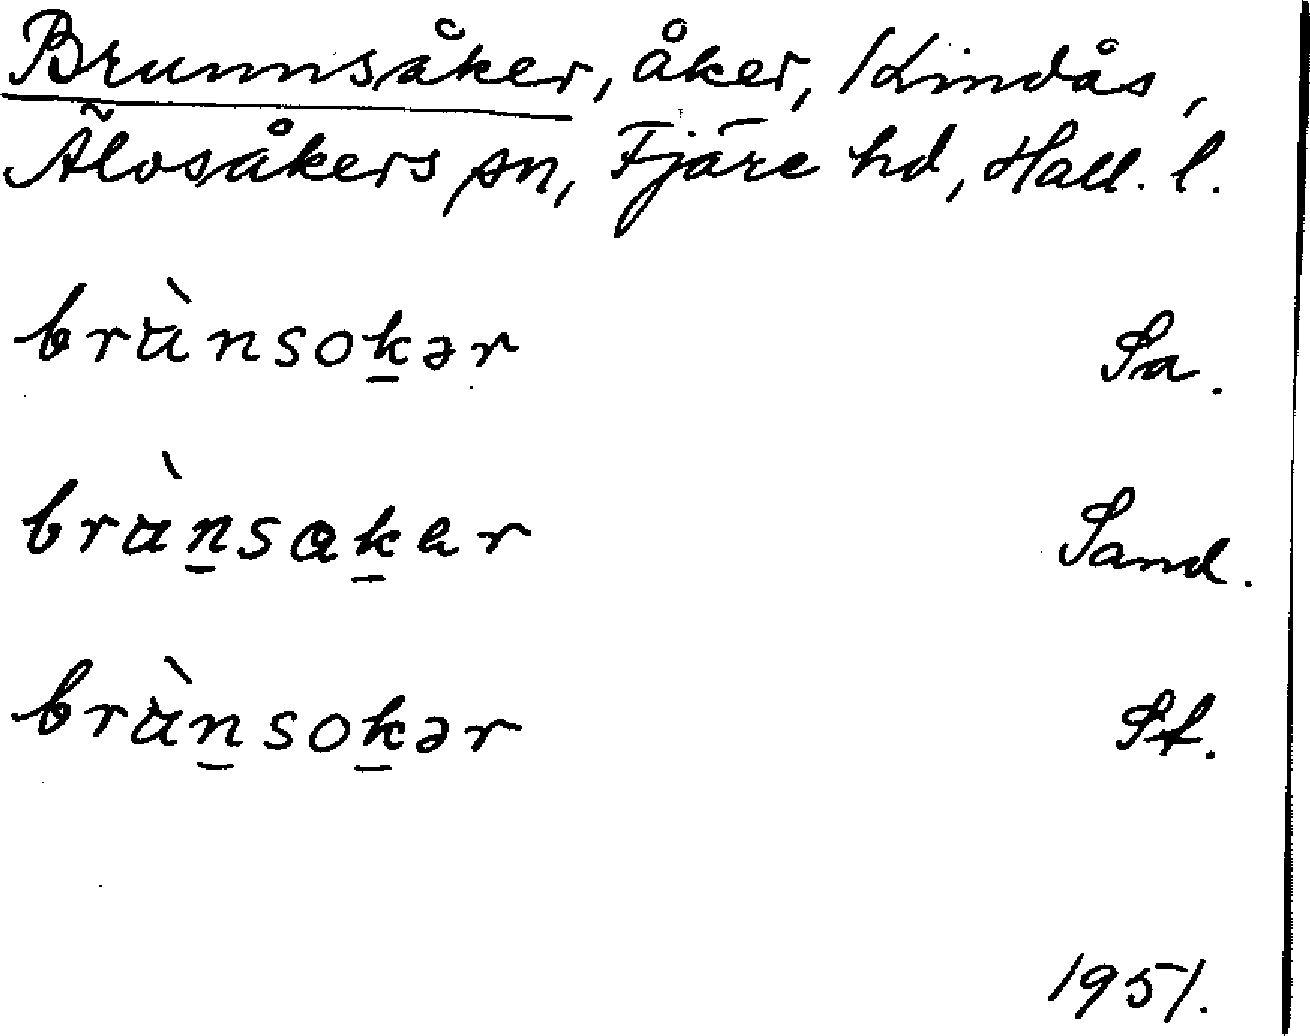 Brunnsåker, åker, Kindås,
Älvsåkers sn, Fjäre hd, Hall. l.
bränsokər Sa.
bränsakar Sand.
bränsokər St.
1951.